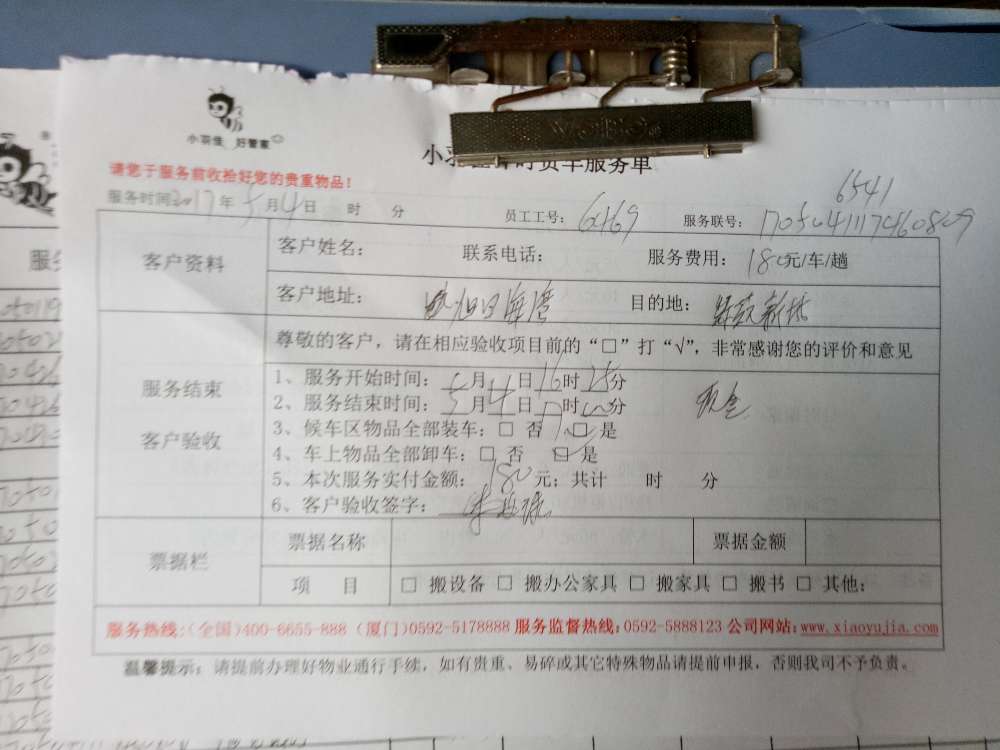 小羽佳 好管家
货车服务单
请您于服务前收拾好您的贵重物品！
6541
服务时间2017年5月4日 时 分 员工工号：6169 服务联号：
客户资料 客户姓名： 联系电话： 服务费用：180元/车/趟
客户地址： 海湾 目的地：
尊敬的客户，请在相应验收项目前的“□”打“√”，非常感谢您的评价和意见
服务结束
客户验收
1、服务开始时间：5月4日16时25分
2、服务结束时间：5月4日17时 分 现金
3、候车区物品全部装车：□ 否 □是
4、车上物品全部卸车：□ 否 □是
5、本次服务实付金额：180元；共计 时 分
6、客户验收签字：
票据栏 票据名称 票据金额
项 目 □ 搬设备 □ 搬办公家具 □ 搬家具 □ 搬书 □ 其他：
服务热线：（全国）400-6655-888（厦门）0592-5178888 服务监督热线：0592-5888123 公司网站：www.xiaoyujia.com
温馨提示：请提前办理好物业通行手续，如有贵重、易碎或其它特殊物品请提前申报，否则我司不予负责。